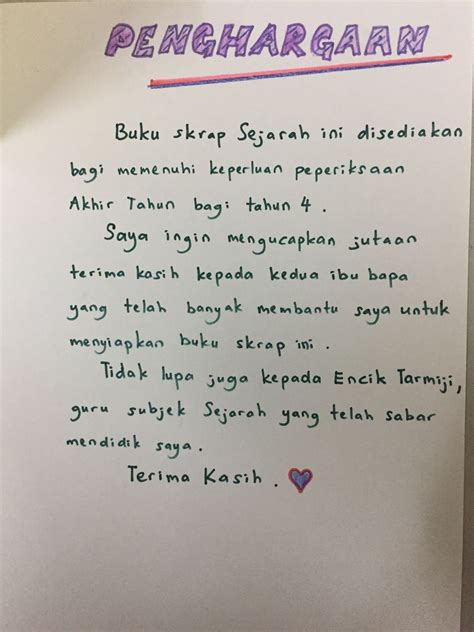 PENGHARGAAN
Buku skrap Sejarah ini disediakan
bagi memenuhi keperluan peperiksaan
Akhir Tahun bagi tahun 4.
Saya ingin mengucapkan jutaan
terima kasih kepada kedua ibu bapa
yang telah banyak membantu saya untuk
menyiapkan buku skrap ini.
Tidak lupa juga kepada Encik Tarmiji,
guru subjek Sejarah yang telah sabar
mendidik saya.
Terima Kasih.